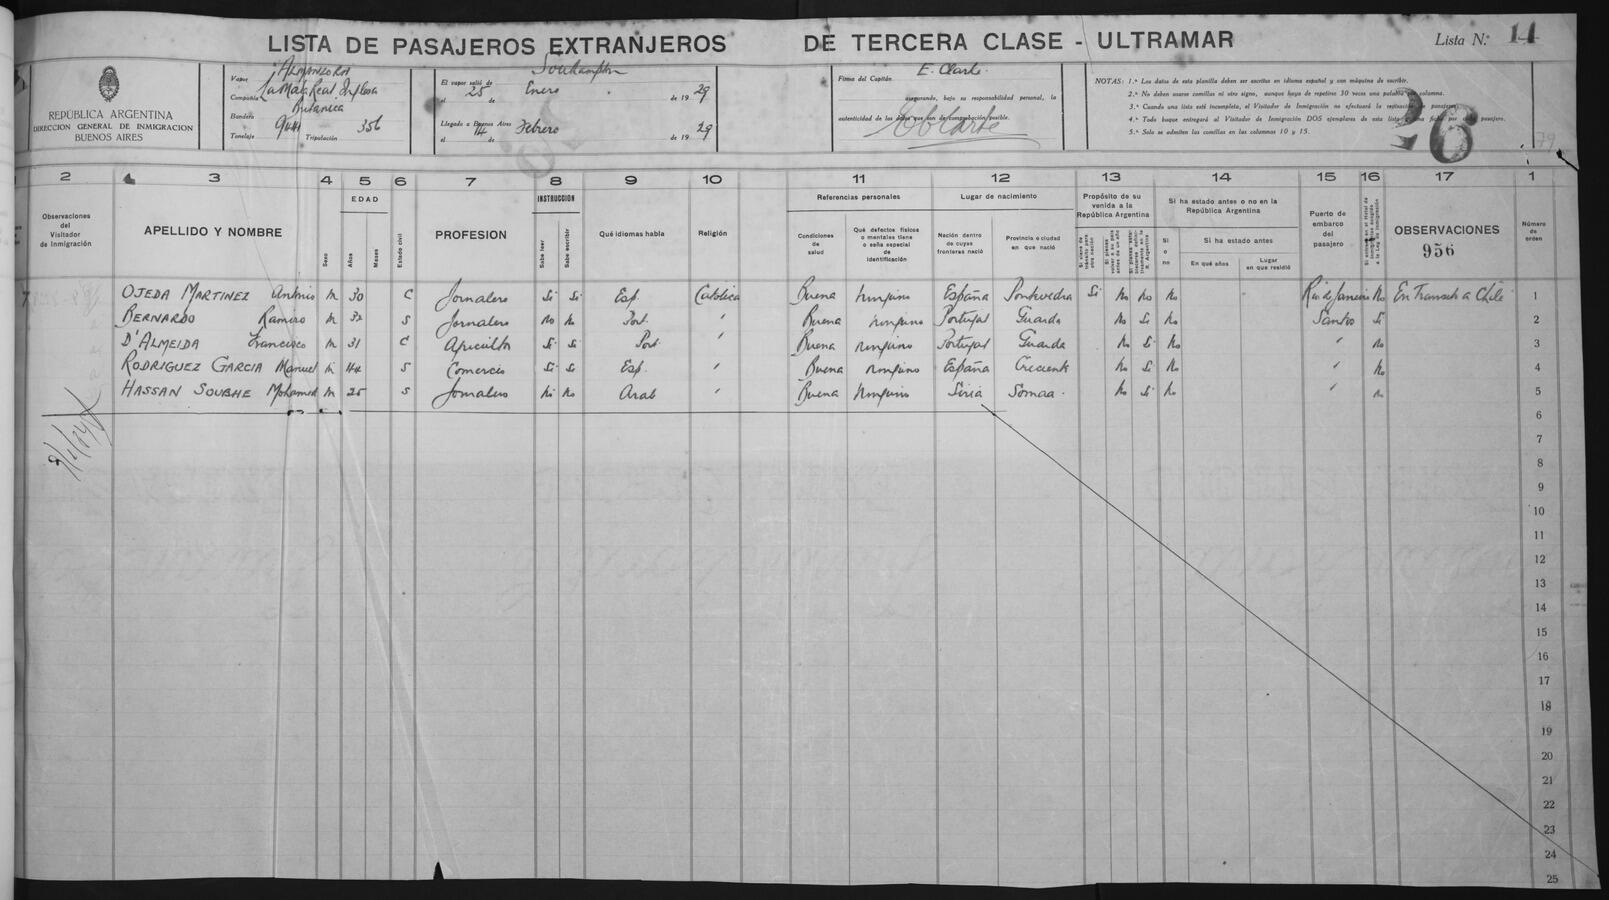 LISTA DE PASAJEROS EXTRANJEROS DE TERCERA CLASE - ULTRAMAR
Lista N.° 14
REPÚBLICA ARGENTINA
DIRECCION GENERAL DE INMIGRACION
BUENOS AIRES
Vapor ALMANZORA
Compañía La Mala Real Inglesa
Bandera Britanica
Tonelaje 9441 Tripulación 356
El vapor salió de Southampton
el 25 de Enero de 1929
Llegado a Buenos Aires
el 14 de Febrero de 1929
Firma del Capitán E. Clarke.
asegurando, bajo su responsabilidad personal, la
autenticidad de los datos que son de comprobación posible.
NOTAS: 1.ª Los datos de esta planilla deben ser escritos en idioma español y con máquina de escribir.
2.ª No deben usarse comillas ni otro signo, aunque haya de repetirse 30 veces una palabra por columna.
3.ª Cuando una lista esté incompleta, el Visitador de Inmigración no efectuará la revisación de pasajeros.
4.ª Todo buque entregará al Visitador de Inmigración DOS ejemplares de esta lista y una ficha por cada pasajero.
5.ª Solo se admiten las comillas en las columnas 10 y 15.
26
79
2 3 4 5 6 7 8 9 10 11 12 13 14 15 16 17 1
Observaciones del Visitador de Inmigración
APELLIDO Y NOMBRE
Sexo
EDAD
Años
Meses
Estado civil
PROFESION
INSTRUCCION
Sabe leer
Sabe escribir
Qué idiomas habla
Religión
Referencias personales
Condiciones de salud
Qué defectos físicos o mentales tiene o seña especial de identificación
Lugar de nacimiento
Nación dentro de cuyas fronteras nació
Provincia o ciudad en que nació
Propósito de su venida a la República Argentina
Si ha estado antes o no en la República Argentina
Si o no
Si ha estado antes
En qué años
Lugar en que residió
Puerto de embarco del pasajero
OBSERVACIONES
956
Número de orden
OJEDA MARTINEZ Antonio M 30 C Jornalero Si Si Esp. Católica Buena Ninguno España Pontevedra Si No No No Rio de Janeiro No En Transito a Chile 1
BERNARDO Ramiro M 32 S Jornalero No No Port. " Buena Ninguno Portugal Guarda No Si No Santos Si 2
D'ALMEIDA Francisco M 31 C Agricultor Si Si Port. " Buena Ninguno Portugal Guarda No Si No " No 3
RODRIGUEZ GARCIA Manuel M 44 S Comercio Si Si Esp. " Buena Ninguno España Creciente No Si No " No 4
HASSAN SOUBHE Mohamed M 25 S Jornalero No No Arab " Buena Ninguno Siria Somaa No Si No " No 5
6
7
8
9
10
11
12
13
14
15
16
17
18
19
20
21
22
23
24
25